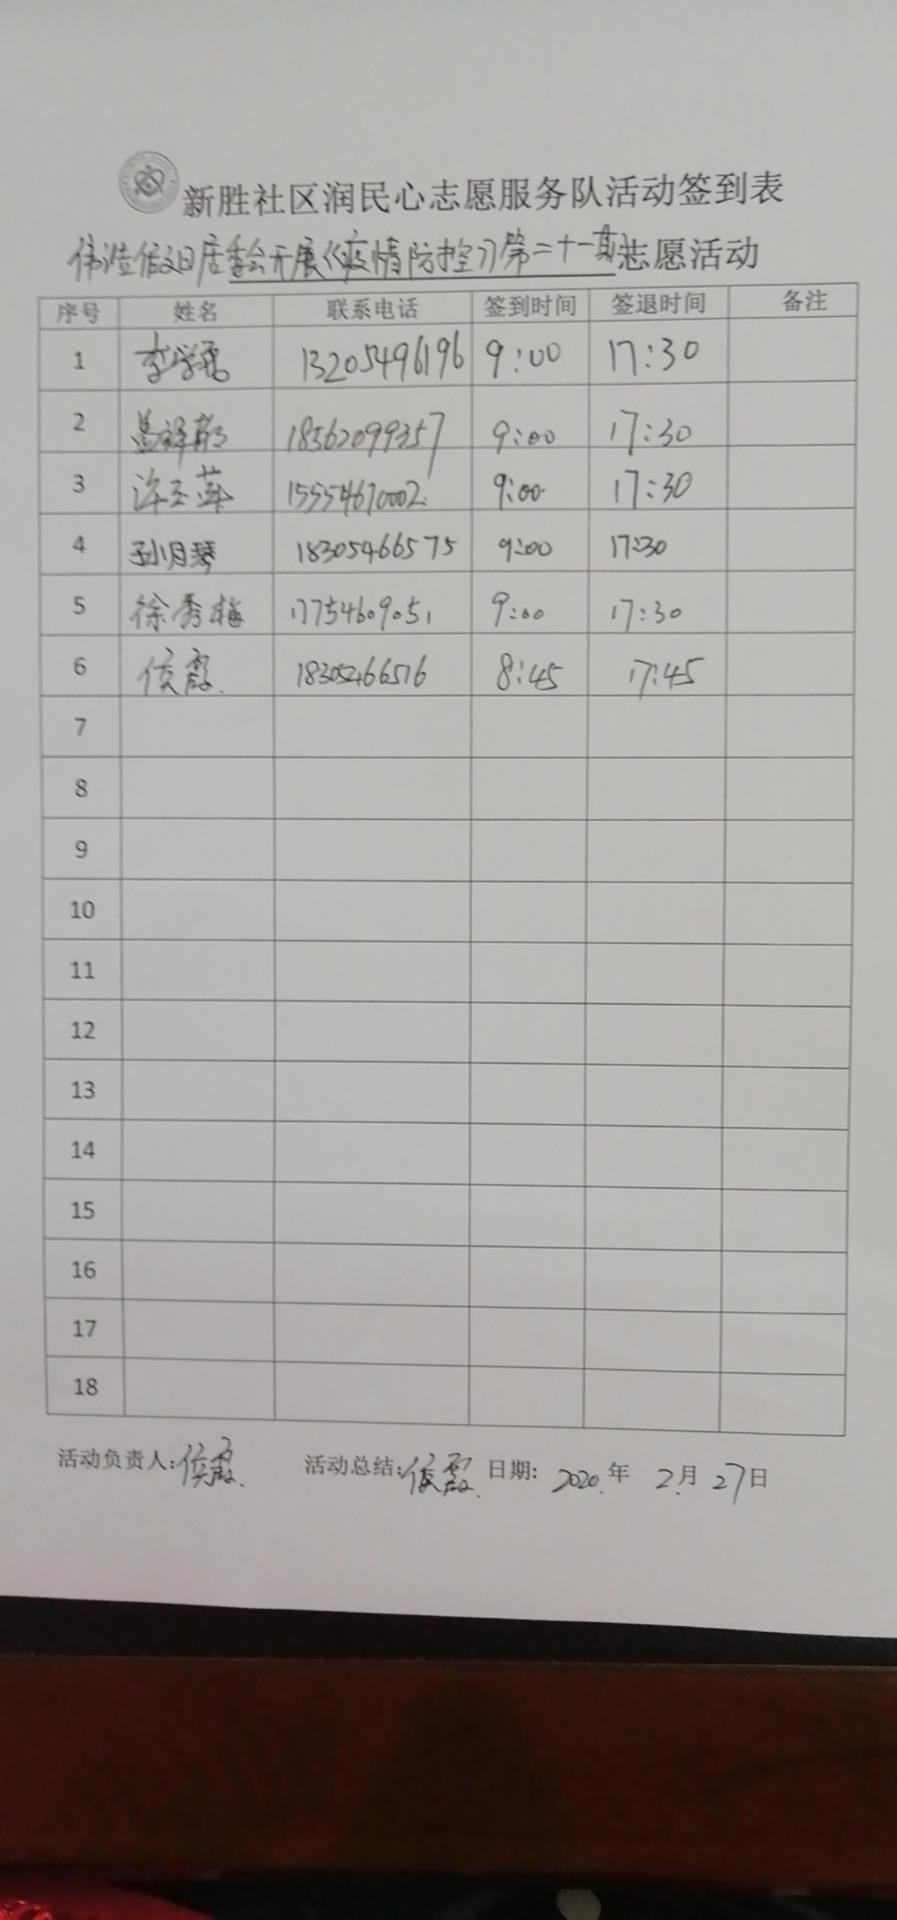 新胜社区润民心志愿服务队活动签到表
伟浩假日居委会开展《疫情防控》第二十一期志愿活动
序号 姓名 联系电话 签到时间 签退时间 备注
1 李学 13205496196 9:00 17:30
2 18562099357 9:00 17:30
3 许玉萍 15554670002 9:00 17:30
4 孙月琴 18305466575 9:00 17:30
5 徐秀梅 17754609051 9:00 17:30
6 侯霞 18305466516 8:45 17:45
7
8
9
10
11
12
13
14
15
16
17
18
活动负责人:侯霞 活动总结:侯霞 日期: 2020年 2月 27日